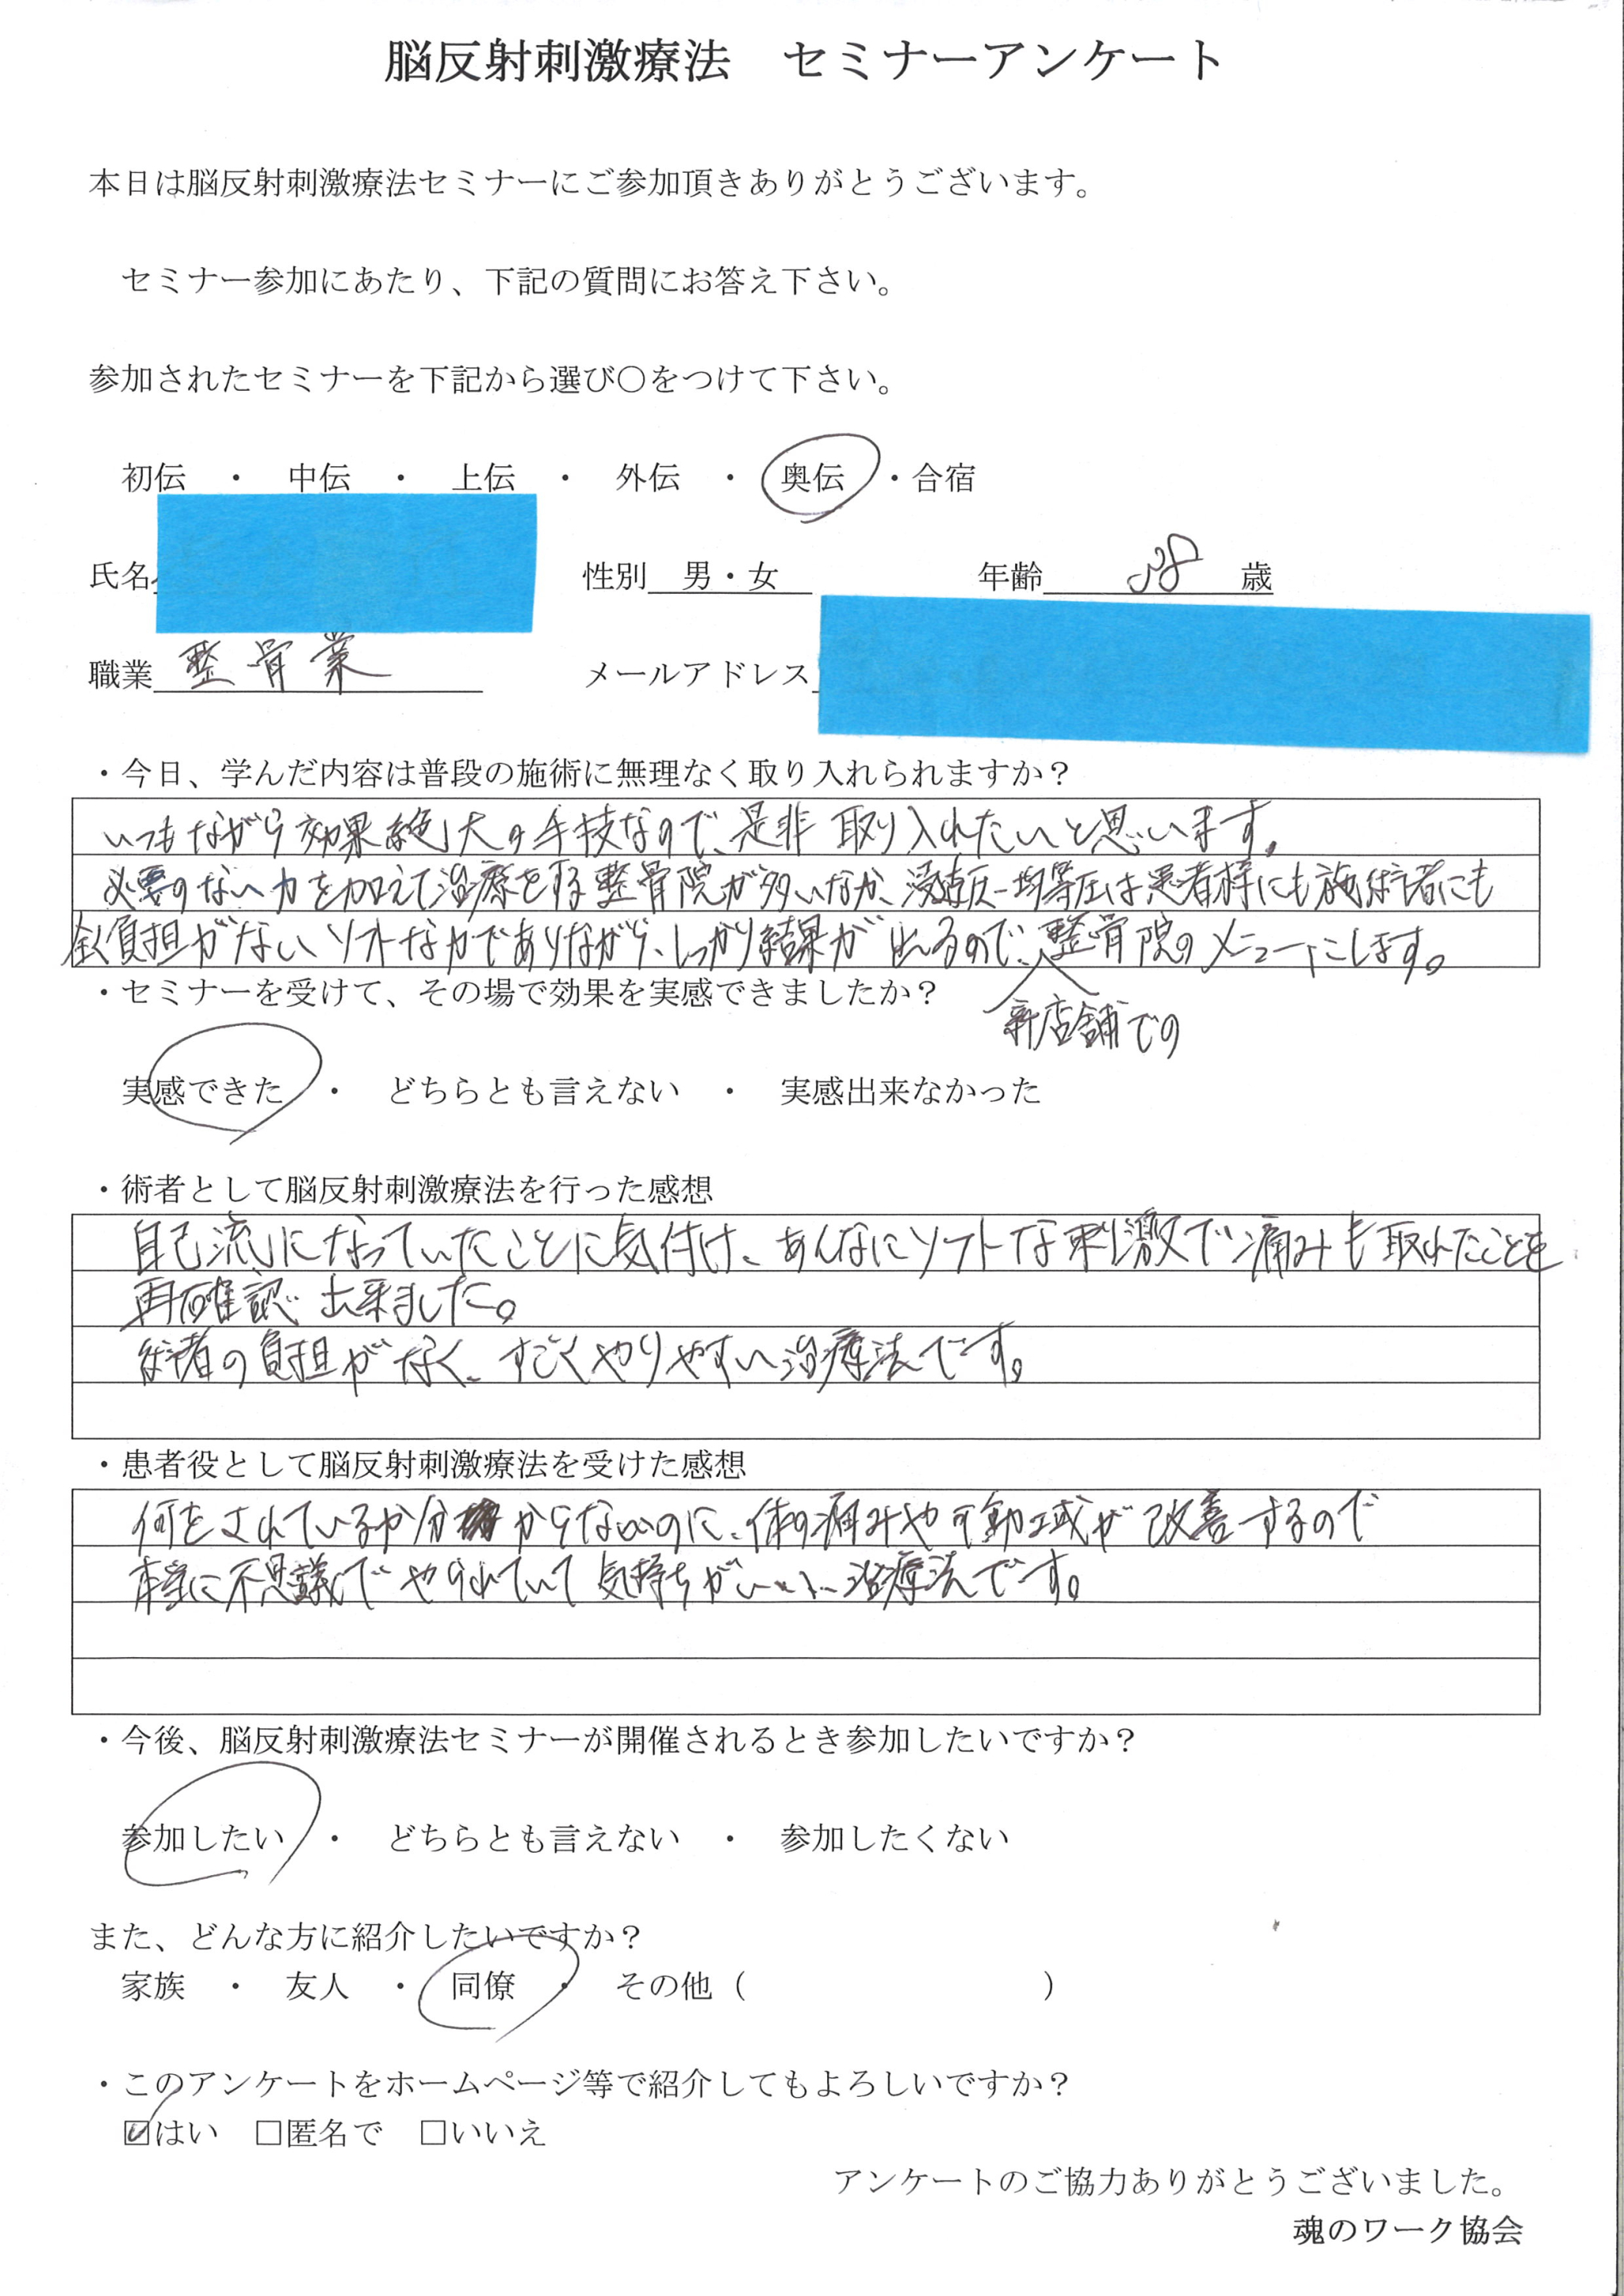 脳反射刺激療法　セミナーアンケート
本日は脳反射刺激療法セミナーにご参加頂きありがとうございます。
セミナー参加にあたり、下記の質問にお答え下さい。
参加されたセミナーを下記から選び〇をつけて下さい。
初伝　・　中伝　・　上伝　・　外伝　・　奥伝　・合宿
氏名　性別　男・女　年齢　38　歳
職業　整骨業　メールアドレス
・今日、学んだ内容は普段の施術に無理なく取り入れられますか？
いつもながら効果絶大の手技なので、是非取り入れたいと思います。
必要のない力を加えて治療をする整骨院が多いなか、均等圧は患者様にも施術者にも
全く負担がないソフトな力でありながら、しっかり結果が出るので、整骨院のメニューにします。
新店舗での
・セミナーを受けて、その場で効果を実感できましたか？
実感できた　・　どちらとも言えない　・　実感出来なかった
・術者として脳反射刺激療法を行った感想
自己流になっていたことに気付け、あんなにソフトな刺激で痛みも取れたことを
再確認出来ました。
術者の負担がなく、すごくやりやすい治療法です。
・患者役として脳反射刺激療法を受けた感想
何をされているか分からないのに、体の痛みや可動域が改善するので
本当に不思議でやられていて気持ちがいい治療法です。
・今後、脳反射刺激療法セミナーが開催されるとき参加したいですか？
参加したい　・　どちらとも言えない　・　参加したくない
また、どんな方に紹介したいですか？
家族　・　友人　・　同僚　・　その他（　　　　　　　　　）
・このアンケートをホームページ等で紹介してもよろしいですか？
☑はい　□匿名で　□いいえ
アンケートのご協力ありがとうございました。
魂のワーク協会